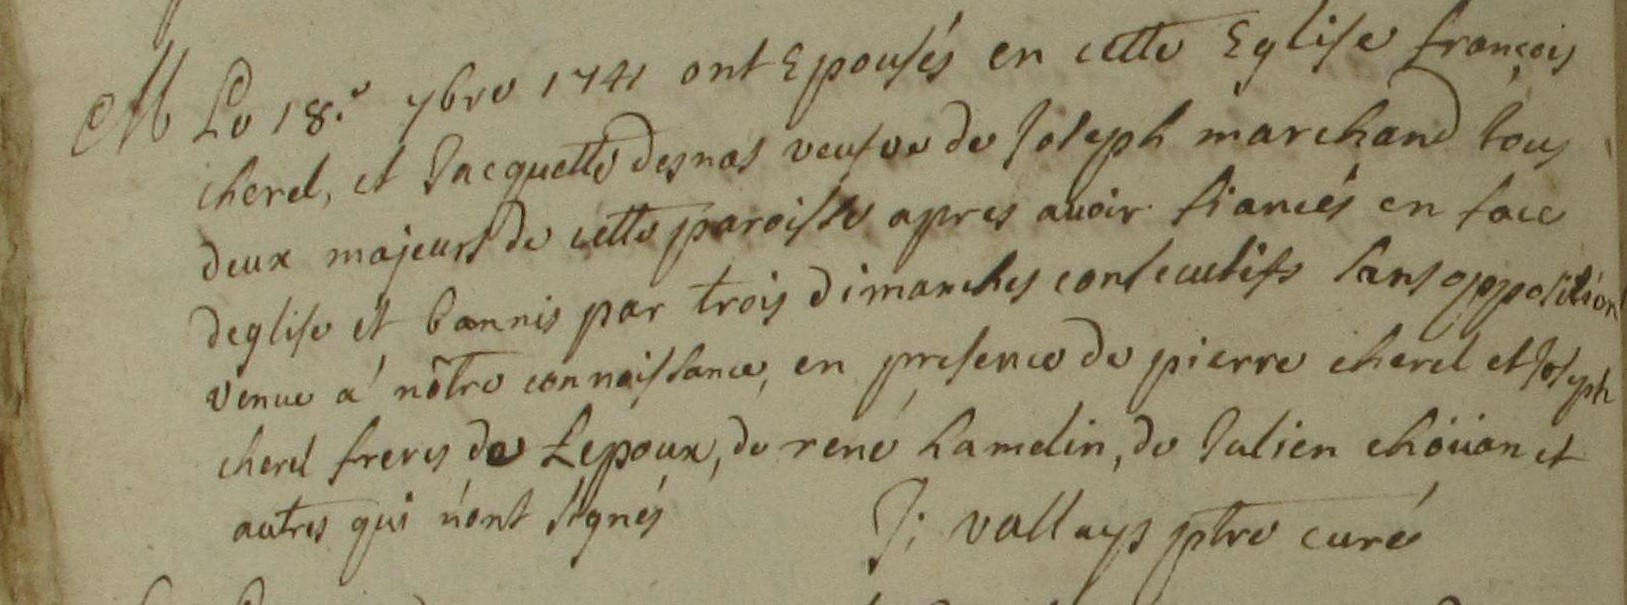 M Le 18.e 7bre 1741 ont Epousés en cette Eglise françois
cherel, et Jacquette desnos veufve de Joseph marchand tous
deux majeurs de cette paroisse apres avoir fiancés en face
deglise et bannis par trois dimanches consecutifs sans opposition
venue a nôtre connoissance, en presence de pierre cherel et Joseph
cherel freres de Lepoux, de rené hamelin, de Julien choüan et
autres qui n'ont signés
J: vallays ptre curé